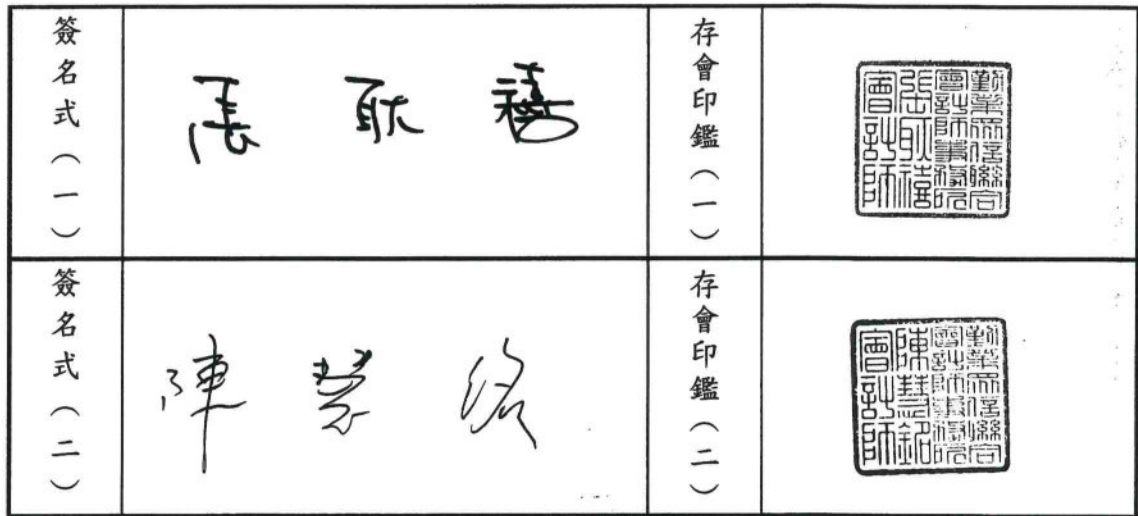 簽名式（一）
張耿禧
存會印鑑（一）
勤業眾信聯合
會計師事務所
張耿禧
會計師
簽名式（二）
陳慧銘
存會印鑑（二）
勤業眾信聯合
會計師事務所
陳慧銘
會計師